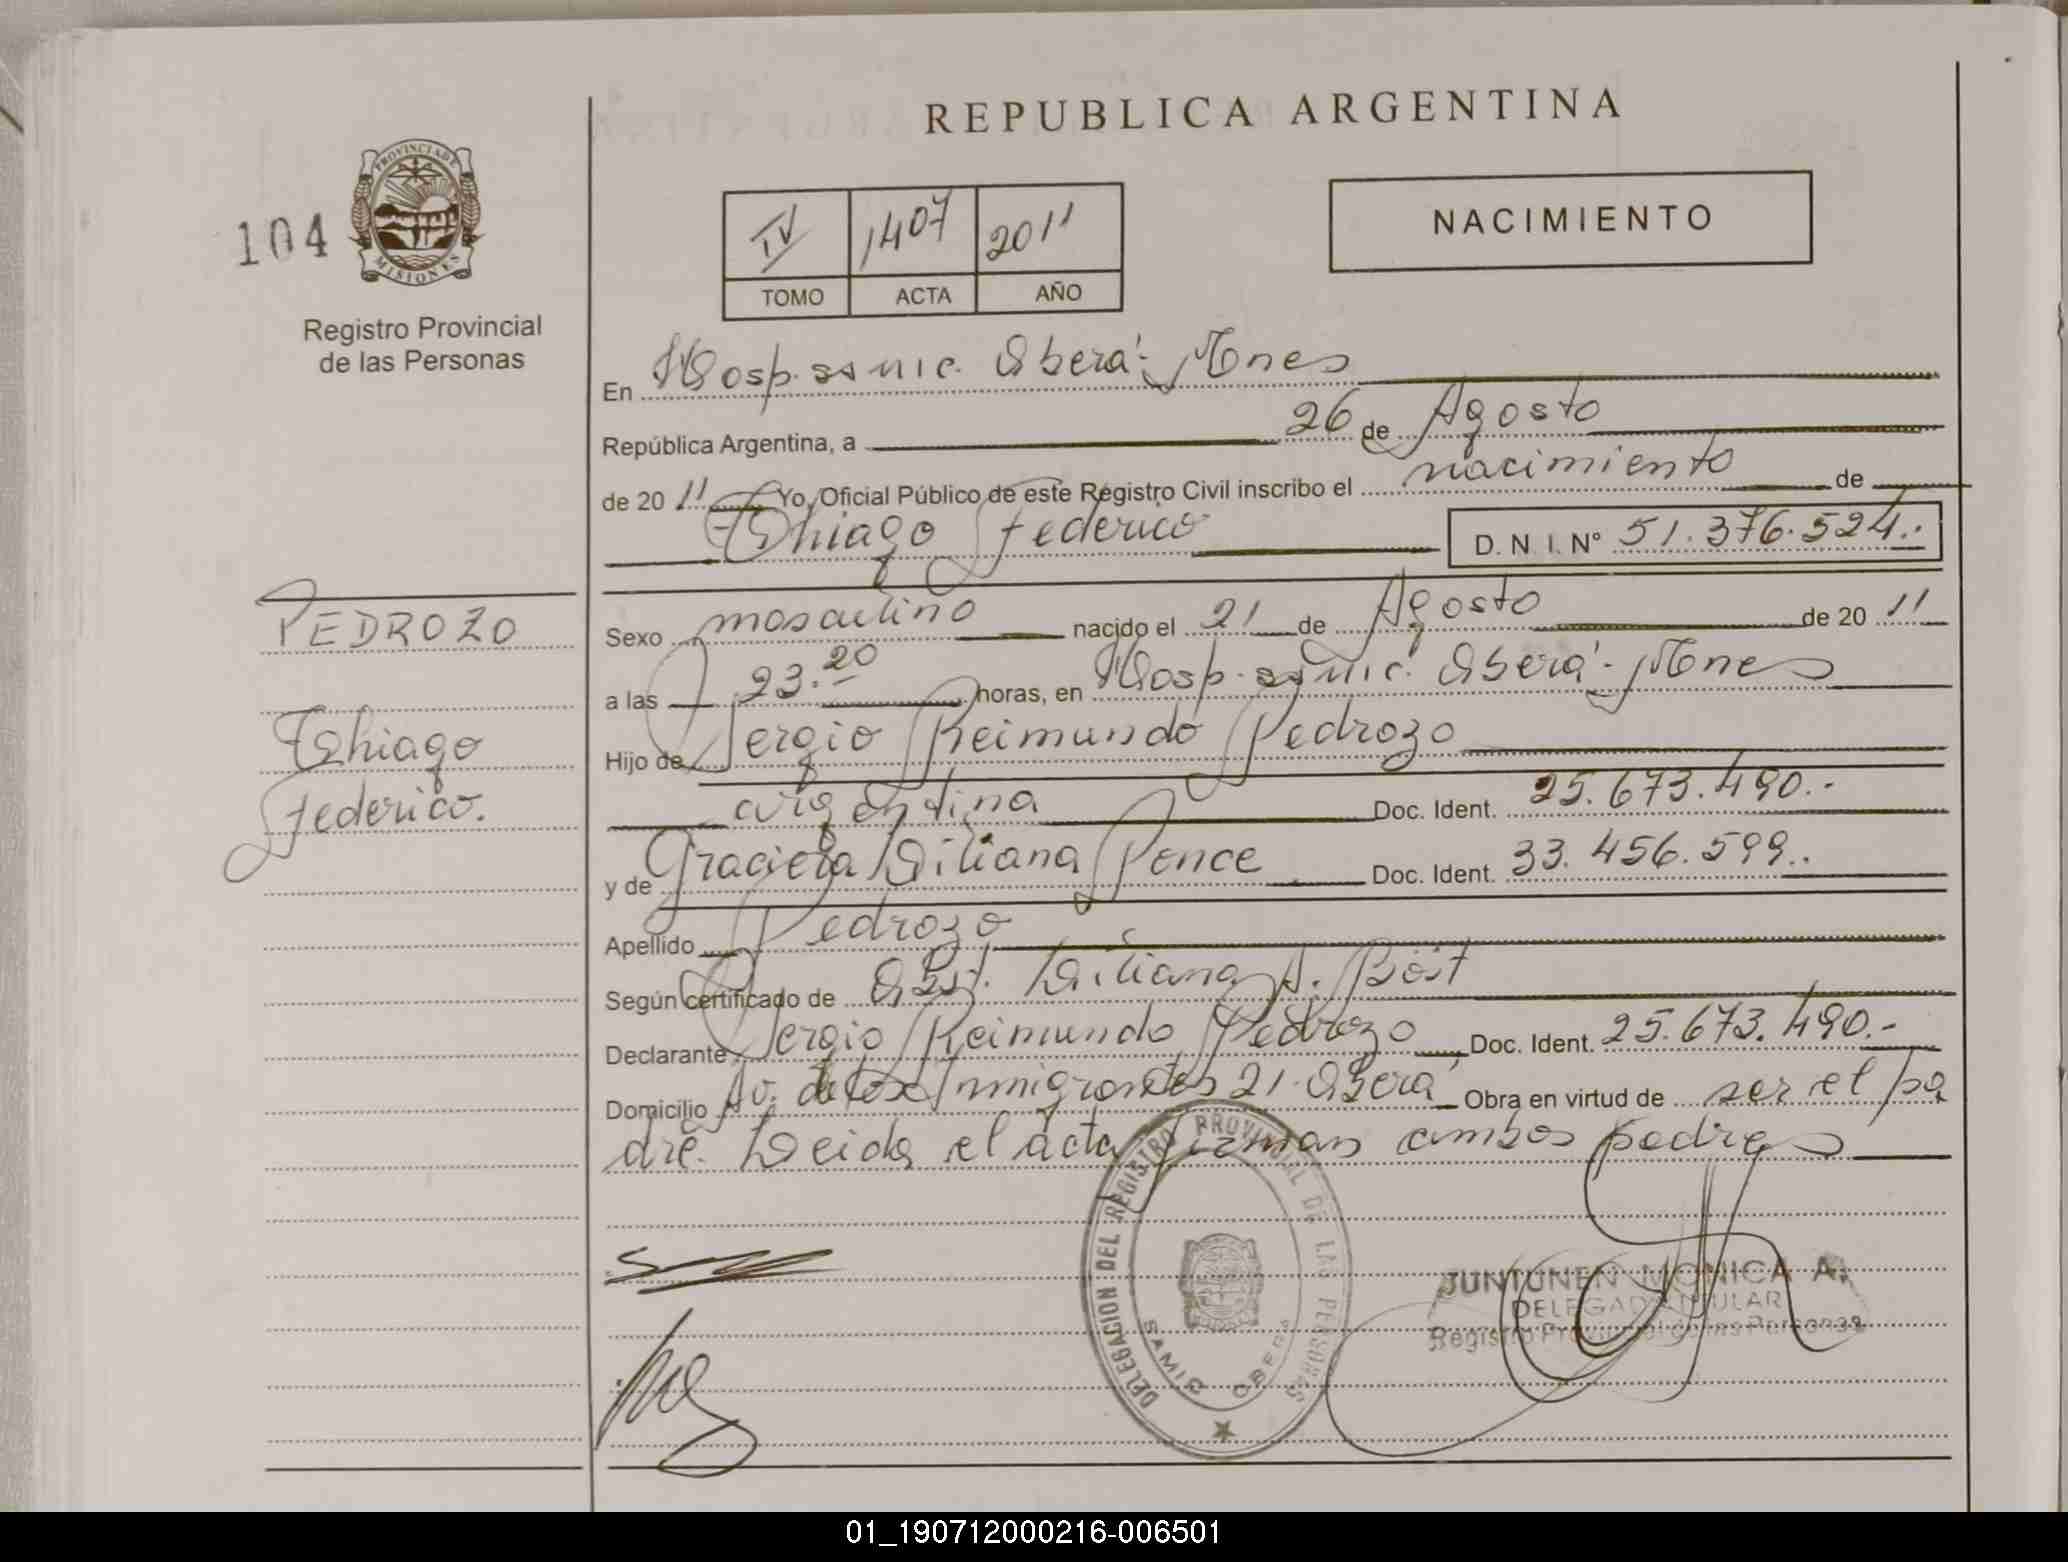 REPUBLICA ARGENTINA
104
PROVINCIA DE MISIONES
Registro Provincial
de las Personas
IV 1407 2011
TOMO ACTA AÑO
NACIMIENTO
En Hosp. ssmic. Oberá - Mnes
República Argentina, a 26 de Agosto
de 2011 Yo, Oficial Público de este Registro Civil inscribo el nacimiento de
Thiago Federico D. N. I. N° 51.376.524.-
PEDROZO
Thiago
Federico.
Sexo masculino nacido el 21 de Agosto de 2011
a las 23.20 horas, en Hosp. ssmic. Oberá - Mnes
Hijo de Sergio Reimundo Pedrozo
argentina Doc. Ident. 25.673.490.-
y de Graciela Liliana Ponce Doc. Ident. 33.456.599.
Apellido Pedrozo
Según certificado de Obst. Liliana A. Böst
Declarante Sergio Reimundo Pedrozo Doc. Ident. 25.673.490.-
Domicilio Av. de los Inmigrantes 21 - Oberá Obra en virtud de ser el pa
dre. Leida el acta firman ambos padres
DELEGACION DEL REGISTRO PROVINCIAL DE LAS PERSONAS
SAMIC OBERA
JUNTUNEN MONICA A.
DELEGADA TITULAR
Registro Provincial de las Personas
01_190712000216-006501